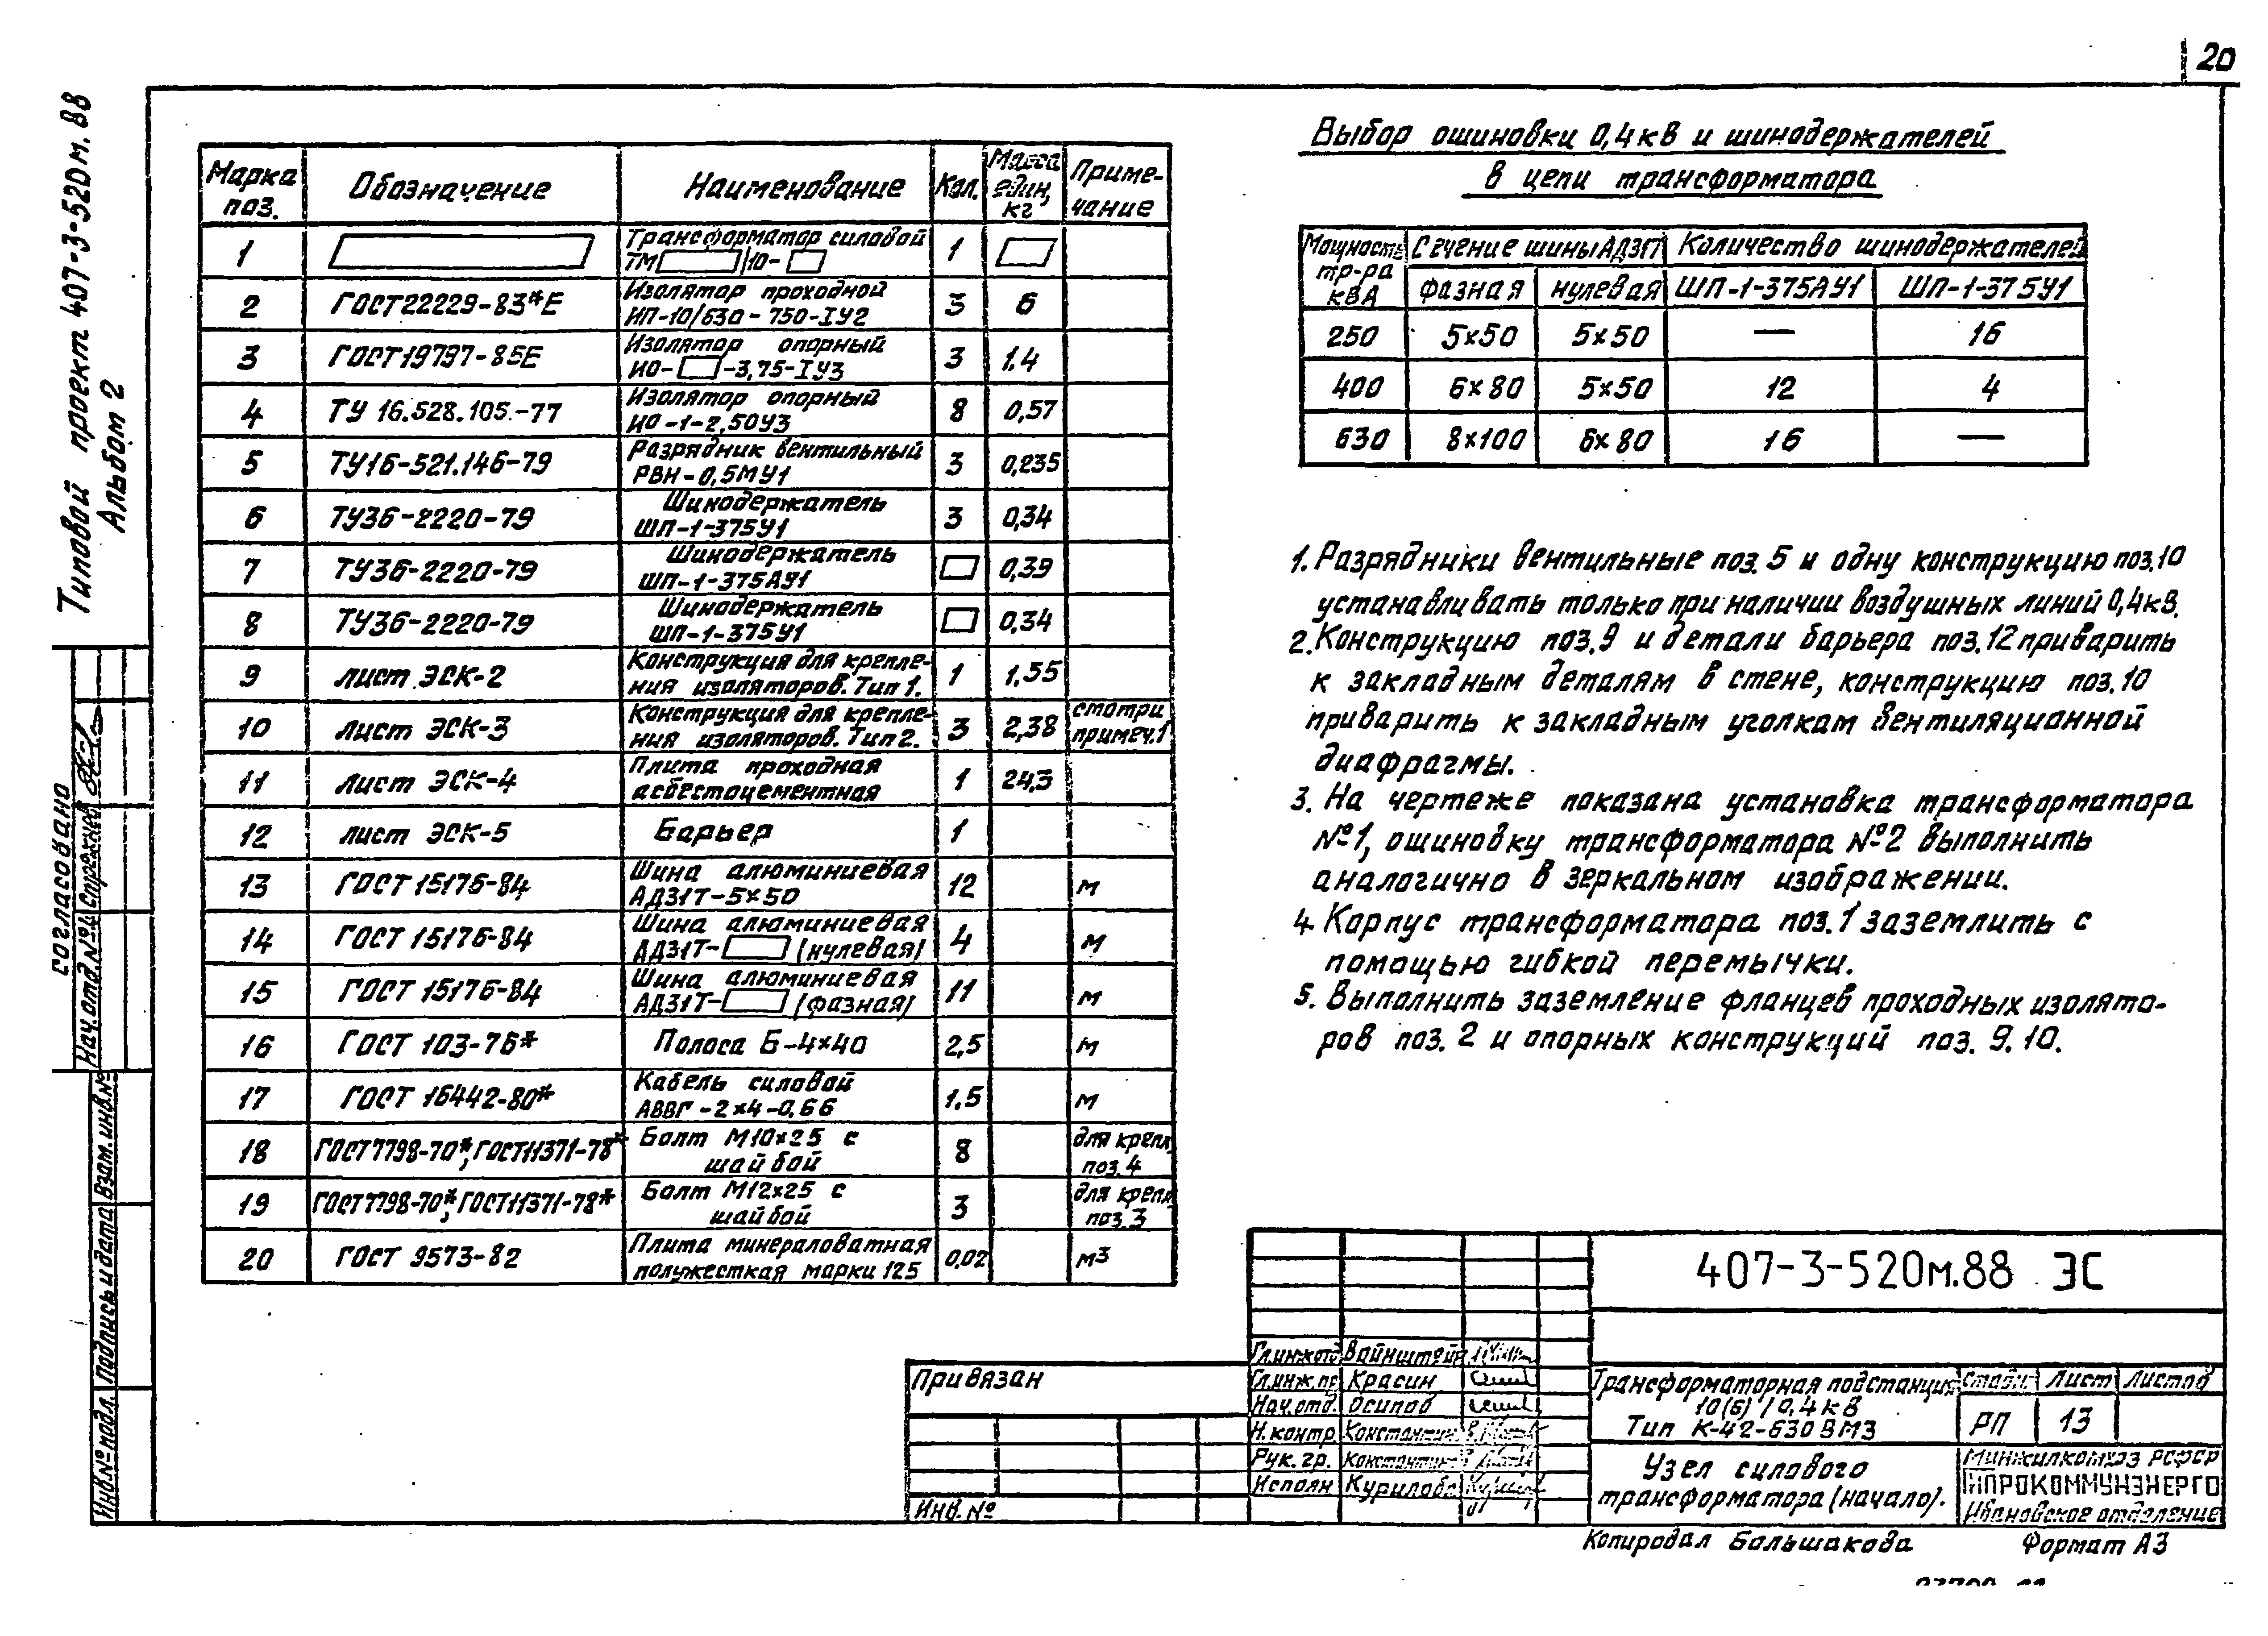 20
Типовой проект 407-3-520м.88
Альбом 2
Марка поз. Обозначение Наименование Кол. Масса един, кг Приме-чание
1 Трансформатор силовой 1
ТМ /10-
2 ГОСТ22229-83*Е Изолятор проходной 3 6
ИП-10/630-750-IУ2
3 ГОСТ19797-85Е Изолятор опорный 3 1,4
ИО- -3,75-IУ3
4 ТУ 16.528.105.-77 Изолятор опорный 8 0,57
ИО-1-2,50У3
5 ТУ16-521.146-79 Разрядник вентильный 3 0,235
РВН-0,5МУ1
6 ТУ36-2220-79 Шинодержатель 3 0,34
ШП-1-375У1
7 ТУ36-2220-79 Шинодержатель 0,39
ШП-1-375АУ1
8 ТУ36-2220-79 Шинодержатель 0,34
ШП-1-375У1
9 лист ЭСК-2 Конструкция для крепле- 1 1,55
ния изоляторов. Тип 1.
10 лист ЭСК-3 Конструкция для крепле- 3 2,38 смотри
ния изоляторов. Тип 2. примеч.1
11 лист ЭСК-4 Плита проходная 1 24,3
асбестоцементная
12 лист ЭСК-5 Барьер 1
13 ГОСТ 15176-84 Шина алюминиевая 12 м
АД31Т-5×50
14 ГОСТ 15176-84 Шина алюминиевая 4 м
АД31Т- (нулевая)
15 ГОСТ 15176-84 Шина алюминиевая 11 м
АД31Т- (фазная)
16 ГОСТ 103-76* Полоса Б-4×40 2,5 м
17 ГОСТ 16442-80* Кабель силовой 1,5 м
АВВГ-2×4-0,66
18 ГОСТ7798-70*, ГОСТ11371-78* Болт М10×25 с 8 для крепл.
шайбой поз.4
19 ГОСТ7798-70*, ГОСТ11371-78* Болт М12×25 с 3 для крепл
шайбой поз.3
20 ГОСТ 9573-82 Плита минераловатная 0,02 м3
полужесткая марки 125
Выбор ошиновки 0,4кВ и шинодержателей
в цепи трансформатора
Мощность тр-ра кВА Сечение шины АД31Т Количество шинодержателей
фазная нулевая ШП-1-375АУ1 ШП-1-375У1
250 5×50 5×50 — 16
400 6×80 5×50 12 4
630 8×100 6×80 16 —
1. Разрядники вентильные поз. 5 и одну конструкцию поз.10
устанавливать только при наличии воздушных линий 0,4кВ.
2. Конструкцию поз.9 и детали барьера поз.12 приварить
к закладным деталям в стене, конструкцию поз.10
приварить к закладным уголкам вентиляционной
диафрагмы.
3. На чертеже показана установка трансформатора
№1, ошиновку трансформатора №2 выполнить
аналогично в зеркальном изображении.
4. Корпус трансформатора поз.1 заземлить с
помощью гибкой перемычки.
5. Выполнить заземление фланцев проходных изолято-
ров поз. 2 и опорных конструкций поз. 9.10.
согласовано
Нач.отд.№4
Инв.№ подл. Подпись и дата Взам.инв.№
Привязан
Инв. №
407-3-520м.88 ЭС
Гл.инж.отд Вайнштейн
Гл.инж.пр Красин
Нач.отд. Осипов
Н.контр Константин
Рук.гр. Константин
Исполн Курилова
Трансформаторная подстанция
10(6)/0,4кВ
Тип К-42-630ВМ3
Стадия Лист Листов
РП 13
Узел силового
трансформатора (начало).
Минжилкомхоз РСФСР
ГИПРОКОММУНЭНЕРГО
Ивановское отделение
Копировал Большакова Формат А3